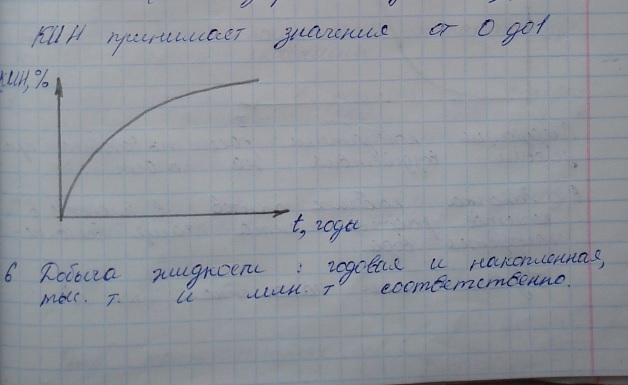 КИН принимает значения от 0 до 1
КИН, %
t, годы
6 Добыча жидкости : годовая и накопленная,
тыс. т. и млн. т соответственно.